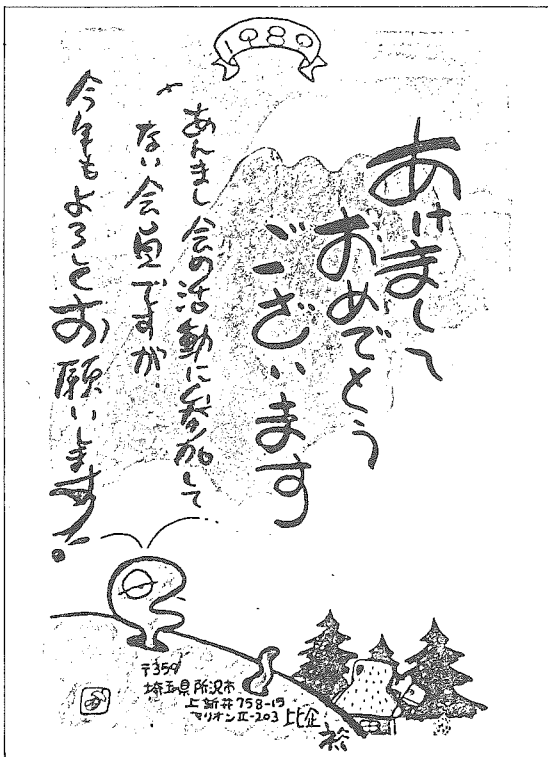 1989
あけまして
おめでとう
ございます
あんまし会の活動に参加して
ない会員ですが、
今年もよろしくお願いします!
〒359
埼玉県所沢市
上新井758-15
マリオンⅡ-203
比企